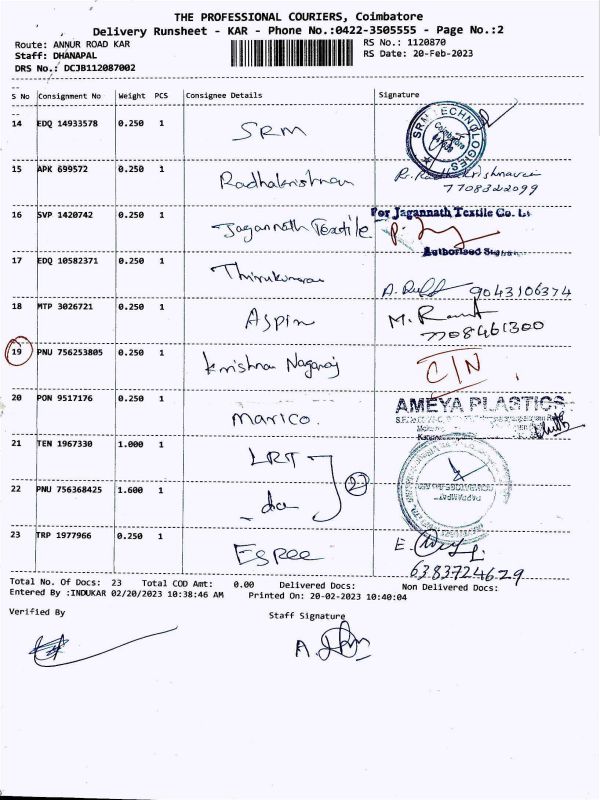 THE PROFESSIONAL COURIERS, Coimbatore
Delivery Runsheet - KAR - Phone No.:0422-3505555 - Page No.:2
Route: ANNUR ROAD KAR RS No.: 1120870
Staff: DHANAPAL RS Date: 20-Feb-2023
DRS No.: DCJB112087002
S No Consignment No Weight PCS Consignee Details Signature
14 EDQ 14933578 0.250 1 SRM SRM TECHNOLOGIES Coimbatore
15 APK 699572 0.250 1 Radhakrishnan R. Radhakrishnavai
7708322099
16 SVP 1420742 0.250 1 Jagannath Textile For Jagannath Textile Co. Lt
Authorised
17 EDQ 10582371 0.250 1 Thirukumaran 9043106374
18 MTP 3026721 0.250 1 Aspin M.
7708461300
19 PNU 756253805 0.250 1 Krishna Nagaraj C/N
20 PON 9517176 0.250 1 Marico. AMEYA PLASTICS
21 TEN 1967330 1.000 1 LRT
22 PNU 756368425 1.600 1 do 2
23 TRP 1977966 0.250 1 Espee E.
6383724629
Total No. Of Docs: 23 Total COD Amt: 0.00 Delivered Docs: Non Delivered Docs:
Entered By :INDUKAR 02/20/2023 10:38:46 AM Printed On: 20-02-2023 10:40:04
Verified By Staff Signature